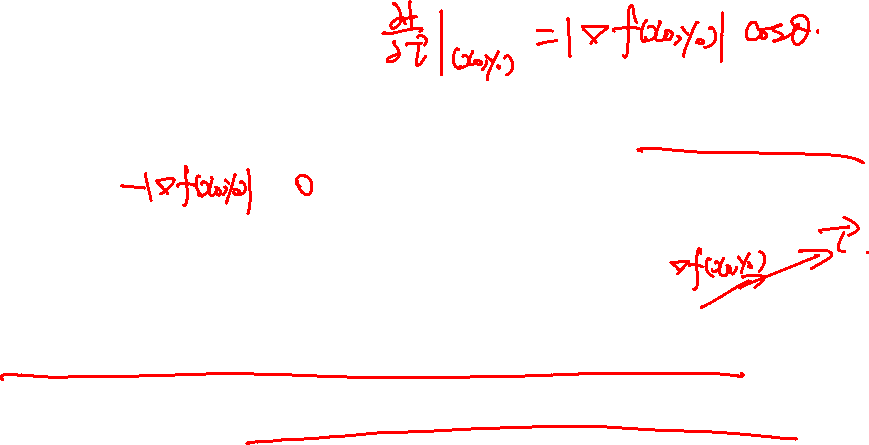 ∂f/∂l⃗ |(x₀,y₀) = |∇f(x₀,y₀)| cosθ.
-|∇f(x₀,y₀)| 0
l⃗.
∇f(x₀,y₀)